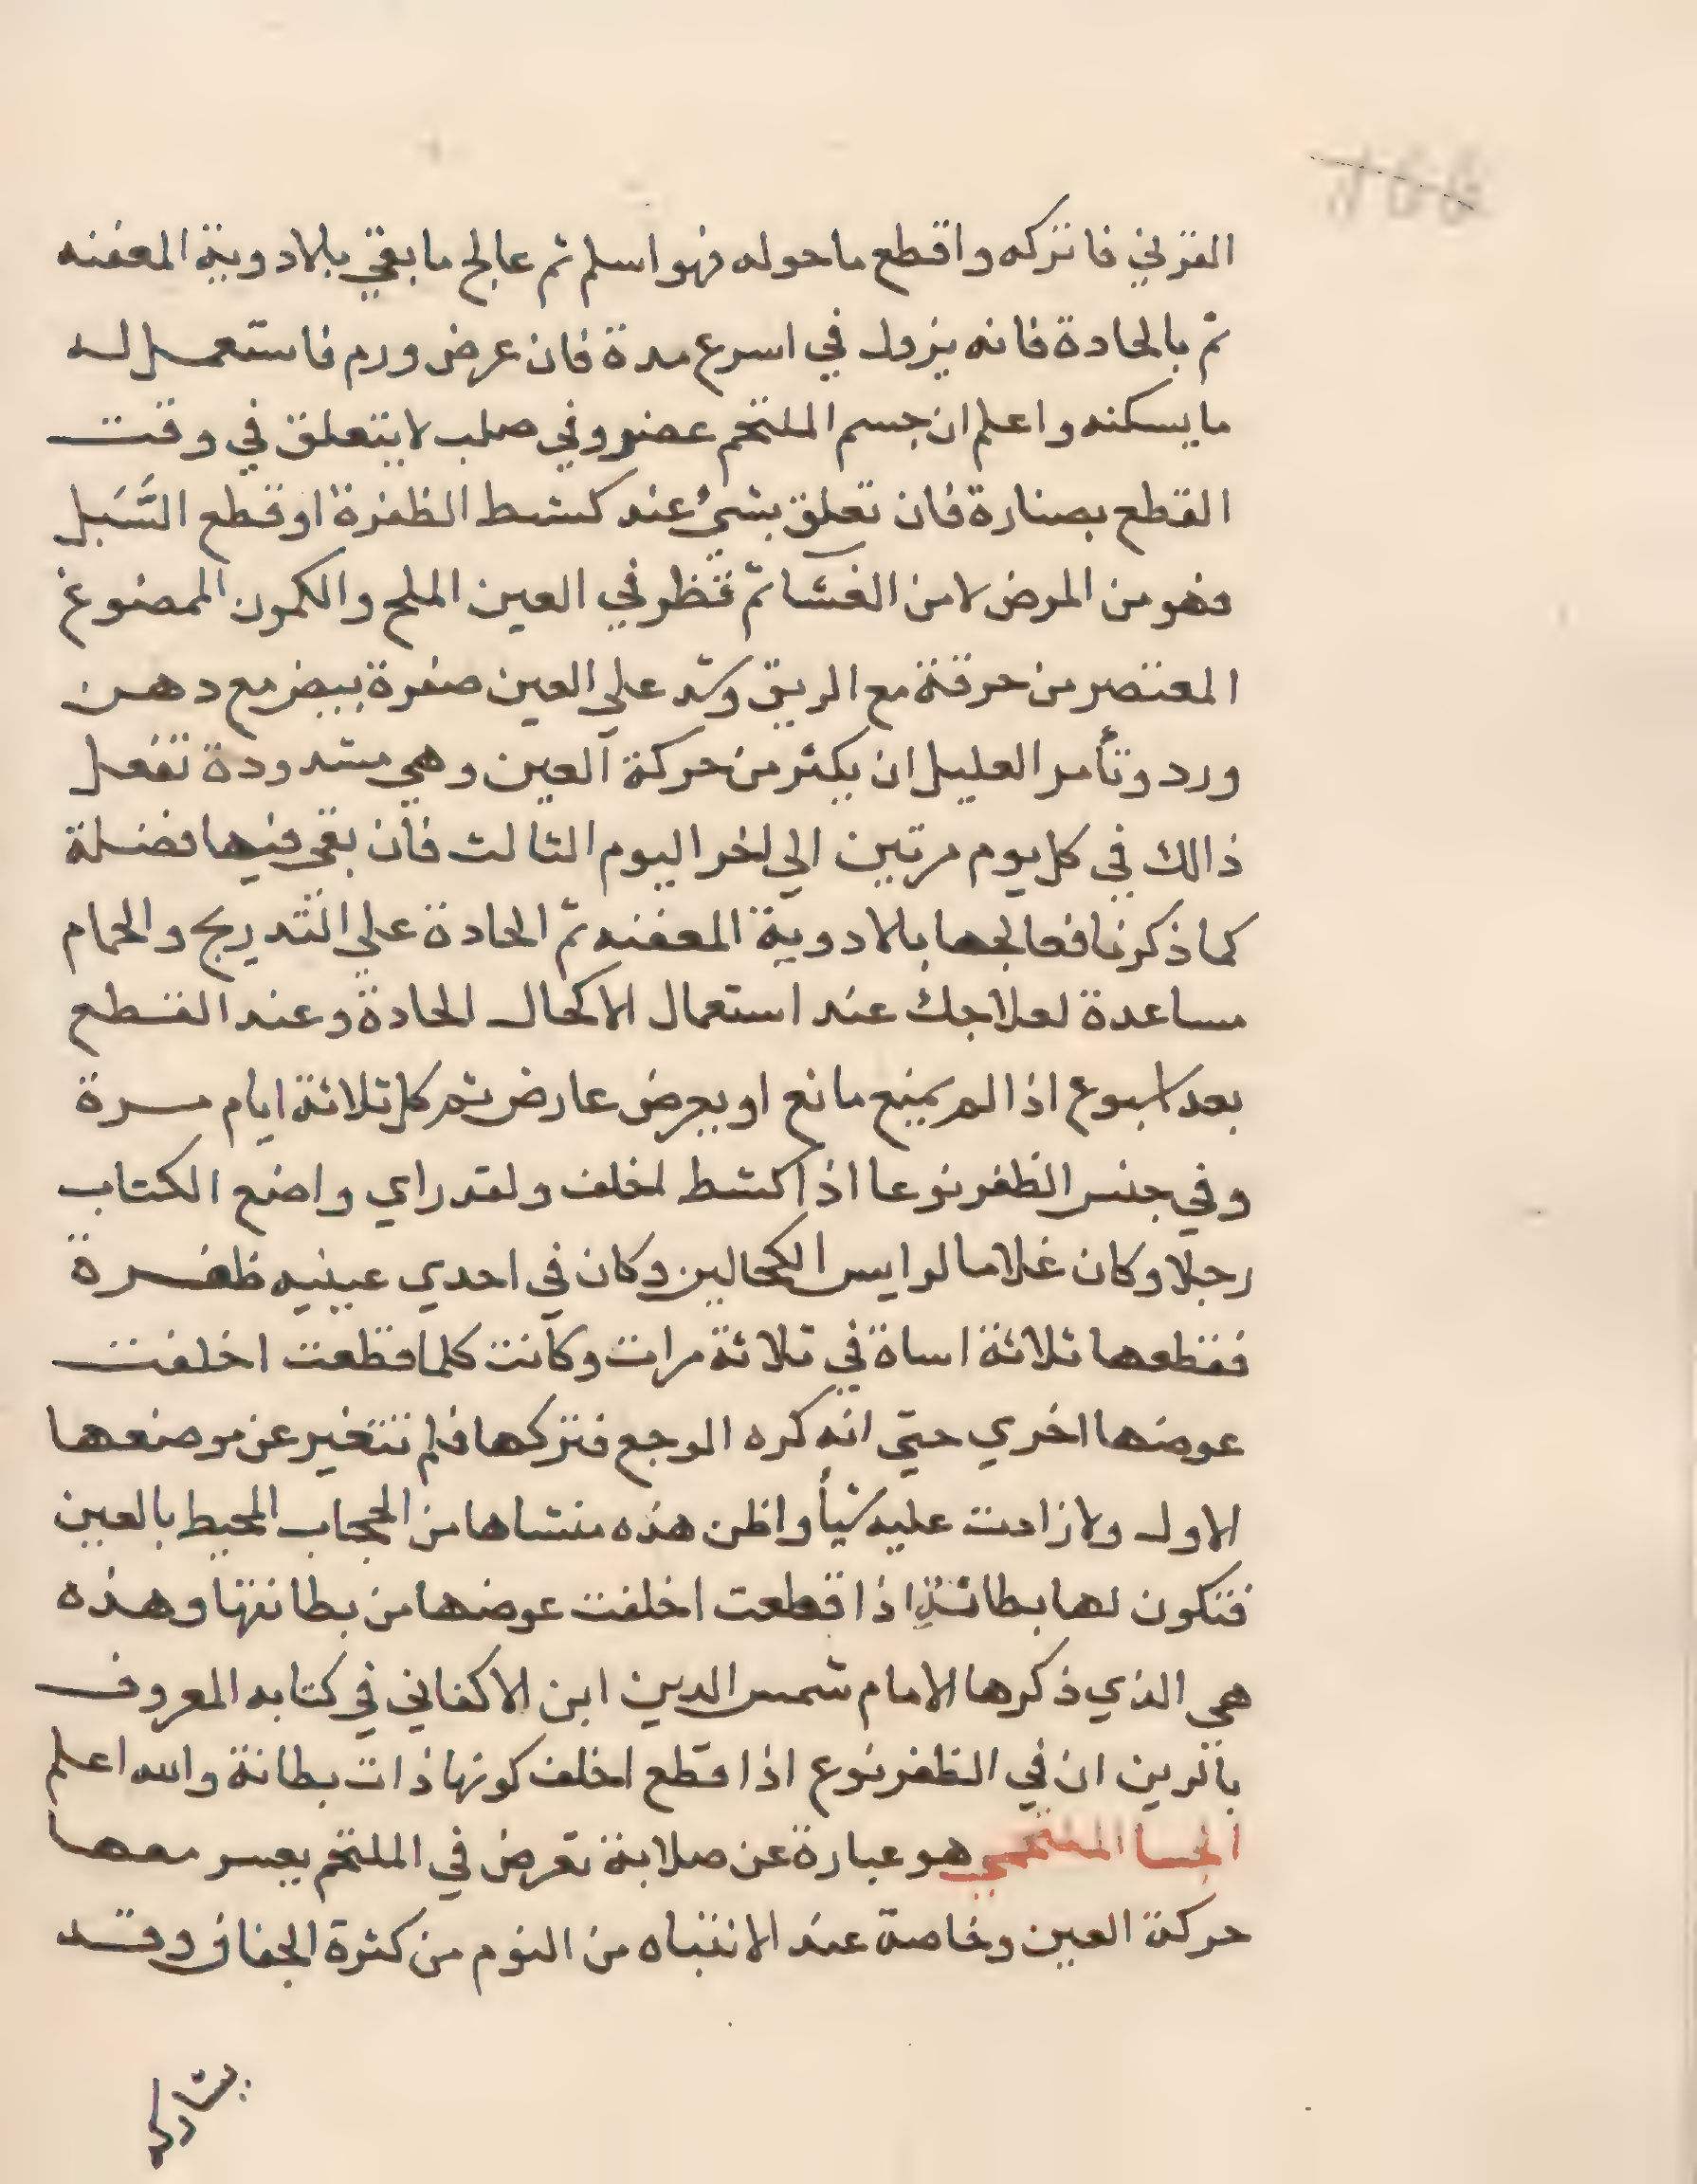 القرني فاتركه واقطع ماحوله فهو اسلم ثم عالج مابقي بلادوية المعفنه
ثم بالحادة فانه يزول في اسرع مدة فان عرض ورم فاستعمل له
مايسكنه واعلم ان جسم الملتحم غضروفي صلب لايتعلق في وقت
القطع بصنارة فان تعلق بشيء عند كشط الظفرة اوقطع السَّبَل
فهو من المرض لامن الغشا ثم قطر في العين الملح والكمون الممضوغ
المعتصر من خرقة مع الريق وشد علي العين صفرة بيض مع دهن
ورد وتأمر العليل ان يكثر من حركة العين وهي مشدودة تفعل
ذالك في كل يوم مرتين الي اخر اليوم الثالث فان بقي فيها فضلة
كما ذكرنا فعالجها بلادوية المعفنه ثم الحادة علي التدريج والحمام
مساعدة لعلاجك عند استعمال الاكحال الحادة وعند القطع
بعد اسبوع اذا لم يمنع مانع او يعرض عارض ثم كل ثلاثة ايام مرة
وفي جنس الظفر نوعا اذا كشط اخلف ولقد راي واضع الكتاب
رجلا وكان غلاما لرايس الكحالين وكان في احدي عينيه ظفرة
فقطعها ثلاثة اساة في ثلاثة مرات وكانت كلما قطعت اخلفت
عوضها اخري حتي انه كره الوجع فتركها فلم تتغير عن موضعها
الاول ولا زادت عليه شيأ واظن هذه منشاها من الحجاب المحيط بالعين
فتكون لها بطانة اذا قطعت اخلفت عوضها من بطانتها وهذه
هي الذي ذكرها الامام شمس الدين ابن الاكفاني في كتابه المعروف
بالرين ان في الظفر نوع اذا قطع اخلف كونها ذات بطانة والله اعلم
الجسا الملتحمي هو عبارة عن صلابة تعرض في الملتحم يعسر معها
حركة العين وخاصة عند الانتباه من النوم من كثرة الجفاف وقد